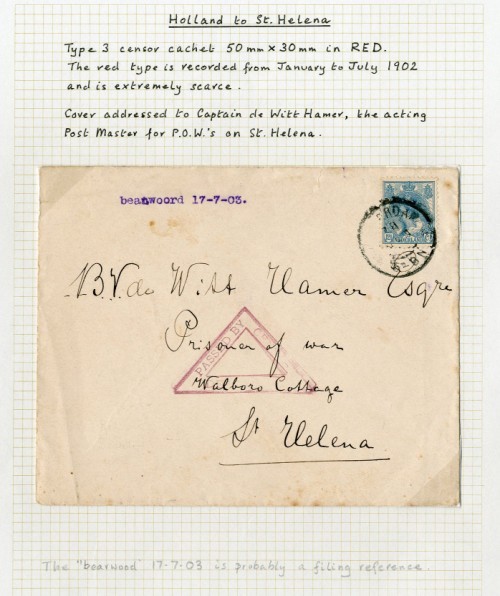 Holland to St. Helena
Type 3 censor cachet 50mm x 30mm in RED.
The red type is recorded from January to July 1902
and is extremely scarce.
Cover addressed to Captain de Witt Hamer, the acting
Post Master for P.O.W.'s on St. Helena.
beantwoord 17-7-03.
B.V. de Witt Hamer Esqre
Prisoner of war
PASSED BY
Walboro Cottage
St Helena
The "bearwood" 17-7-03 is probably a filing reference.